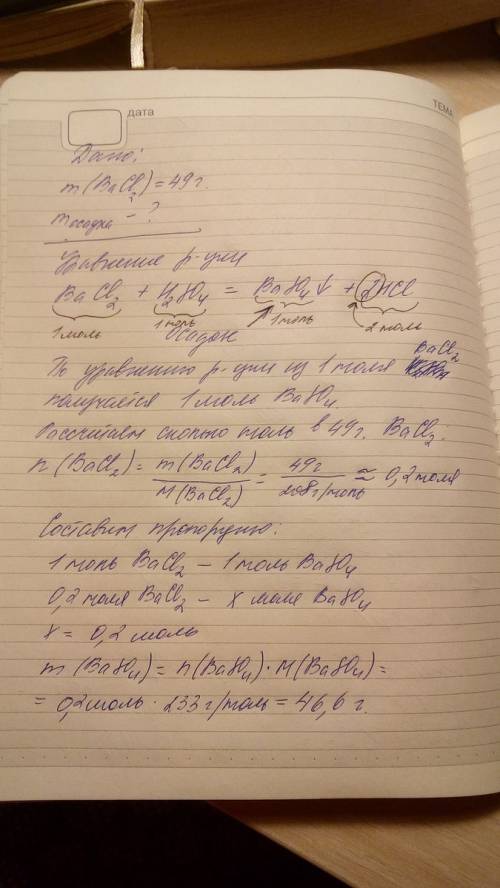 дата
ТЕМА
Дано:
m(BaCl2) = 49 г.
m осадка - ?
Уравнение р-ции
BaCl2 + H2SO4 = BaSO4↓ + 2HCl
1 моль 1 моль 1 моль 2 моль
Осадок
По уравнению р-ции из 1 моля BaCl2
получается 1 моль BaSO4.
Рассчитаем сколько моль в 49 г. BaCl2:
n(BaCl2) = m(BaCl2) / M(BaCl2) = 49 г / 208 г/моль ≈ 0,2 моля
Составим пропорцию:
1 моль BaCl2 - 1 моль BaSO4
0,2 моля BaCl2 - X моля BaSO4
X = 0,2 моль
m(BaSO4) = n(BaSO4) · M(BaSO4) =
= 0,2 моль · 233 г/моль = 46,6 г.